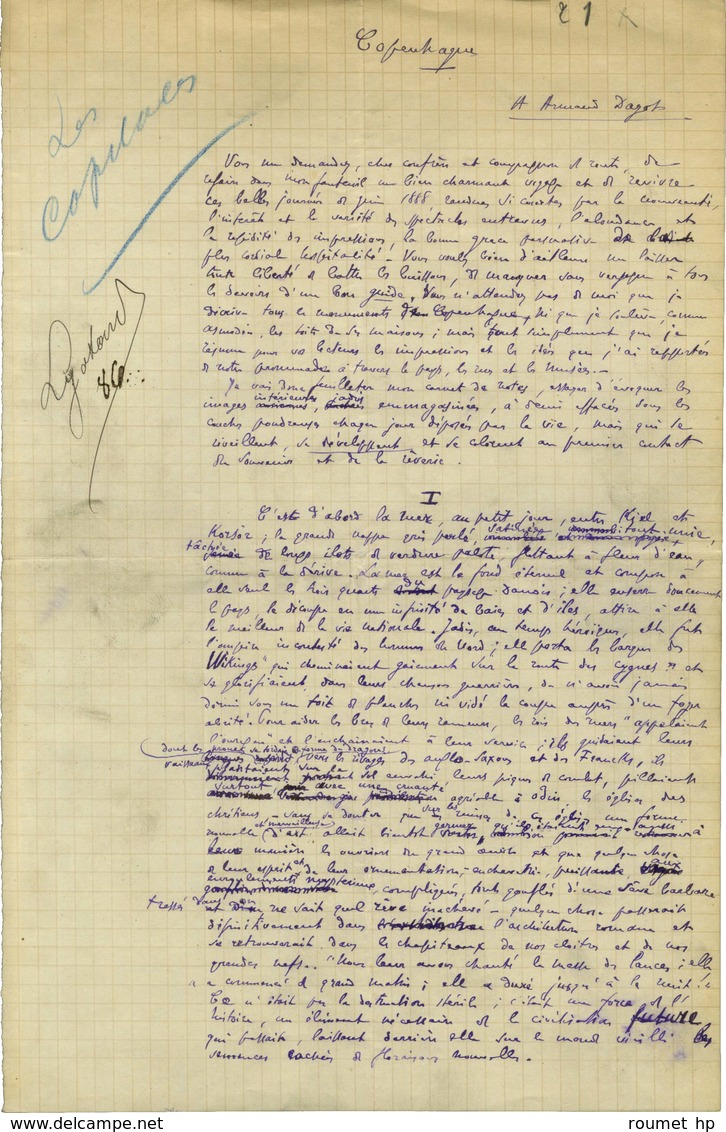 21
Copenhague
A Armand Dayot
Les
Capitales
86
Vous me demandez, cher confrère et compagnon de route, de
refaire dans mon fauteuil un bien charmant voyage et de revivre
ces belles journées de juin 1888, rendues si courtes par la nouveauté,
l'intérêt et la variété des spectacles entrevus, l'abondance et
la rapidité des impressions, la bonne grâce persuasive de la
plus cordiale hospitalité. Vous voulez bien d'ailleurs me laisser
toute liberté de battre les buissons, de manquer sans vergogne à tous
les devoirs d'un bon guide. Vous n'attendez pas de moi que je
décrive tous les monuments de Copenhague, ni que je soulève, comme
Asmodée, les toits de ses maisons; mais tout simplement que je
résume pour vos lecteurs les impressions et les idées que j'ai rapportées
de notre promenade à travers le pays, les rues et les Musées. —
Je vais donc feuilleter mon carnet de notes, essayer d'évoquer les
images intérieures, jadis emmagasinées, à demi effacées sous les
couches poudreuses chaque jour déposées par la vie, mais qui se
réveillent, se développent et se colorent au premier contact
du souvenir et de la rêverie.
I
C'est d'abord la mer, au petit jour, entre Kiel et
Korsör; la grande nappe gris perlé, satinée, tout unie,
tachée de longs îlots de verdure pâlote, flottant à fleur d'eau,
comme à la dérive. La mer est le fond éternel et compose à
elle seule les trois quarts du paysage danois; elle enserre doucement
le pays, le découpe en une infinité de baies et d'îles, attire à elle
le meilleur de la vie nationale. Jadis, au temps héroïque, elle fut
l'empire incontesté des hommes du Nord; elle porta les barques des
Wikings "qui cheminaient gaiement sur la route des cygnes" et
se glorifiaient, dans leurs chansons guerrières, de n'avoir jamais
dormi sous un toit de planches ni vidé la coupe auprès d'un foyer
abrité. Pour aider les bras de leurs rameurs, les rois des mers "appelaient
l'ouragan" et l'enchaînaient à leur service; ils guidaient leurs
vaisseaux dont les proues se tordaient en forme de dragons
vers les rivages des Anglo-Saxons et des Francks, ils
sur le sol envahi leurs piques de combat, pillaient
surtout, avec une cruauté agréable à Odin, les églises des
chrétiens — sans se douter que sur les ruines de ces églises une forme
nouvelle et merveilleuse d'art allait bientôt germer, qu'ils étaient
à leur manière les ouvriers du grand œuvre et que quelque chose
de leur esprit et de leur ornementation, enchevêtrée, puissante aux
enroulements mystérieux, compliqués, tout gonflés d'une sève barbare
tressés dans on ne sait quel rêve inachevé — quelque chose passerait
définitivement dans l'architecture romane et
se retrouverait dans les chapiteaux de nos cloîtres et de nos
grandes nefs. "Nous leur avons chanté la messe des lances; elle
a commencé de grand matin; elle a duré jusqu'à la nuit!"
Ce n'était pas la destruction stérile; c'était une force de l'
histoire, un élément nécessaire de la civilisation future,
qui passait, laissant derrière elle sur le monde vieilli les
semences cachées de floraisons nouvelles. —
© roumet hp